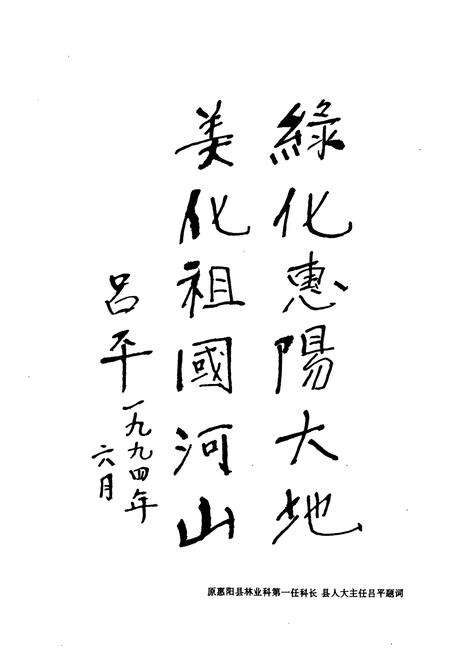 綠化惠陽大地
美化祖國河山
呂平
一九九四年
六月
原惠阳县林业科第一任科长 县人大主任吕平题词